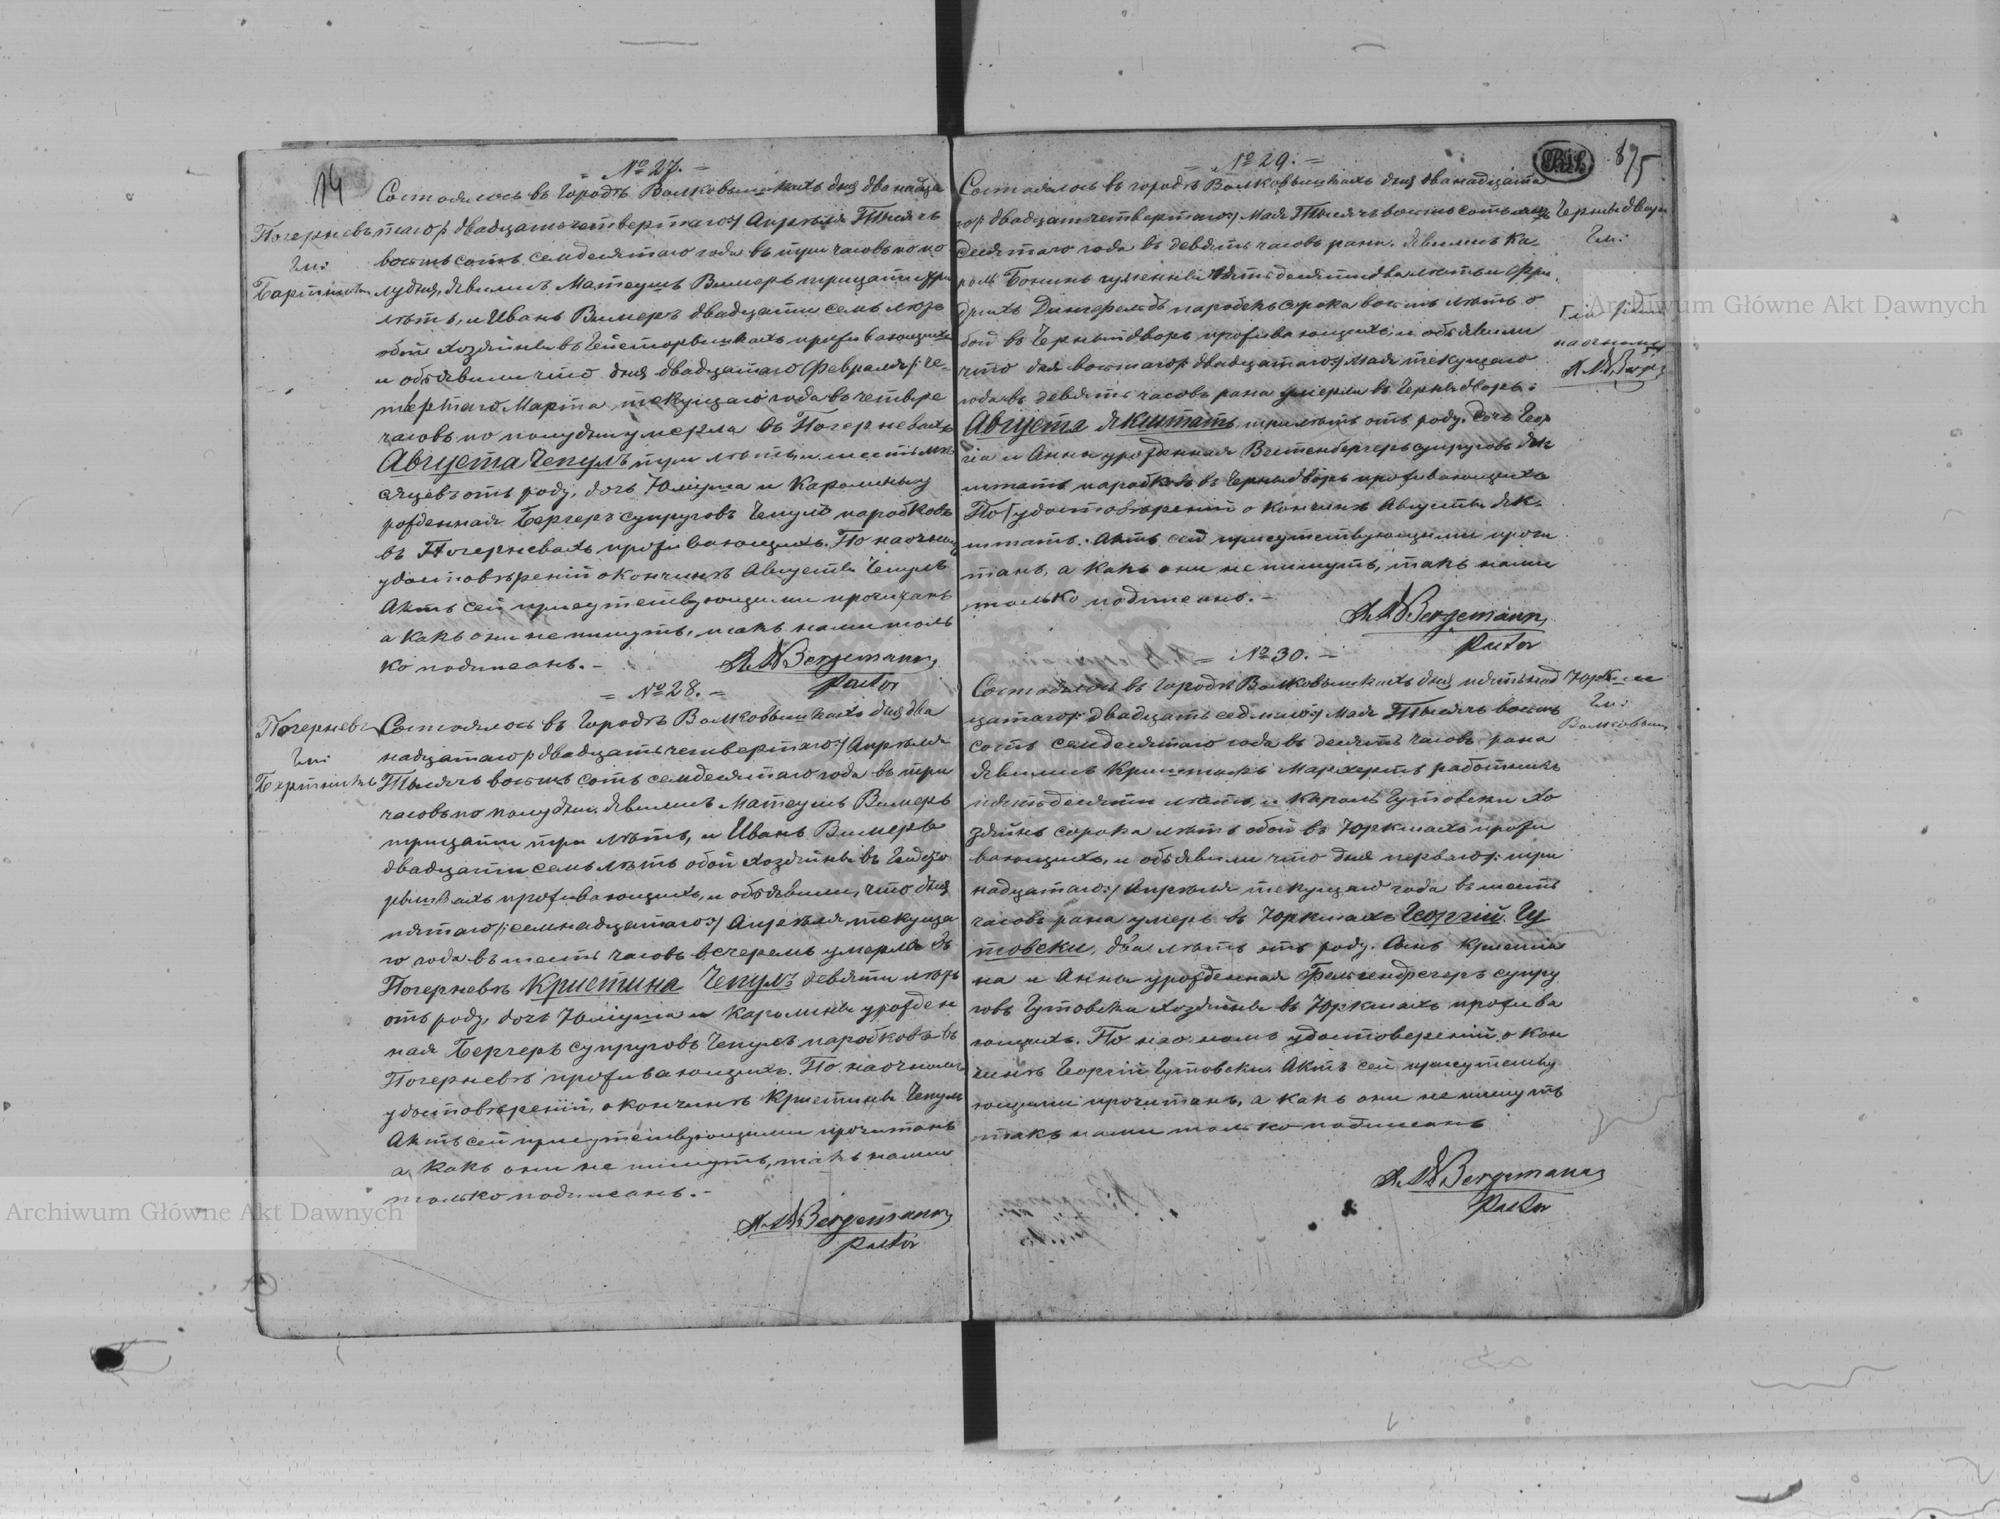 14
№ 27.
Состоялось въ городѣ Волковышкахъ дня двенадца
Погерневъ
таго /: двадцать четвертаго :/ Апрѣля Тысячъ
восемь сотъ семдесятаго года въ три часовъ по по
Гм:
лудни, явились Матеушъ Вимеръ тридцати три
лѣтъ, и Иванъ Вимеръ двадцати семь лѣтъ
обои хозяины въ проживающихъ
и объявили что дня двадцатаго Февраля /: че-
твертаго Марта текущаго года въ четыре
часовъ по полудни умерла въ Погерневахъ
Августа Чепулъ три лѣтъ и шесть мѣ-
сяцевъ отъ роду, дочь Юліуша и Каролины у
рожденная Бергеръ супруговъ Чепулъ паробковъ
въ Погерневахъ проживающихъ. По наочном
удостовѣреніи о кончинѣ Августы Чепулъ
Актъ сей присутствующими прочитанъ
а какъ они не пишутъ, такъ нами толь
ко подписанъ. -
Bergemann
Pastor
№ 28.
Погерневъ
Состоялось въ городѣ Волковышкахъ дня два
надцатаго /: двадцать четвертаго :/ Апрѣля
Гм:
Тысячъ восемь сотъ семдесятаго года въ три
часовъ по полудни. Явились Матеушъ Вимеръ
тридцати три лѣтъ, и Иванъ Вимеръ
двадцати семь лѣтъ обои хозяины въ
проживающихъ, и объявили, что дня
пятаго /: семнадцатаго :/ Апрѣля текуща
го года въ шесть часовъ вечеромъ умерла въ
Погерневъ Кристина Чепулъ девяти лѣтъ
отъ роду, дочь Юліуша и Каролины урожден
ная Бергеръ супруговъ Чепулъ паробковъ въ
Погерневъ проживающихъ. По наочномъ
удостовѣреніи, о кончинѣ Кристины Чепулъ
Актъ сей присутствующими прочитанъ
а, какъ они не пишутъ, такъ нами
только подписанъ. -
Bergemann
Pastor
№ 29.
875
Состоялось въ городѣ Волковышкахъ дня дванадцата
го /: двадцать четвертаго :/ Мая Тысячъ восемь сотъ сем
десятаго года въ девять часовъ рана. Явились Ка
Гм:
роль пятьдесяти два лѣтъ и Фри
дрихъ паробекъ сорока восемь лѣтъ о
бои въ Чернидворъ проживающихъ, и объявили
что дня восмаго /: двадцатаго :/ Мая текущаго
года въ девять часовъ рана умерла въ Чернидворъ
Августа Якштатъ, три лѣтъ отъ роду, дочь Геор
гія и Анны урожденная супруговъ Як
штатъ паробковъ въ Чернидворъ проживающихъ
По удостовѣреніи о кончинѣ Августы Як-
штатъ. Актъ сей присутствующими прочи
танъ, а какъ они не пишутъ, такъ нами
только подписанъ. -
Bergemann
Pastor
№ 30.
Состоялось въ городѣ Волковышкахъ дня пятьнад
цатаго /: двадцать седмаго :/ Мая Тысячъ восемь
Гм:
сотъ семдесятаго года въ десять часовъ рана
явились Криштофъ работникъ
пятьдесяти лѣтъ, и Кароль Гутовски хо
зяинъ сорока лѣтъ обои въ Юркшахъ прожи
вающихъ, и объявили что дня перваго /: три
надцатаго :/ Апрѣля текущаго года въ шесть
часовъ рана умеръ въ Юркшахъ Георгій Гу
товски, два лѣтъ отъ роду. Сынъ
на и Анны урожденная супру
говъ Гутовски хозяины въ Юркшахъ прожива
ющихъ. По наочномъ удостоверенiи о кон
чинѣ Георгій Гутовски Актъ сей присутству
ющими прочитанъ, а какъ они не пишутъ
такъ нами только подписанъ
Bergemann
Pastor
Archiwum Główne Akt Dawnych
Archiwum Główne Akt Dawnych